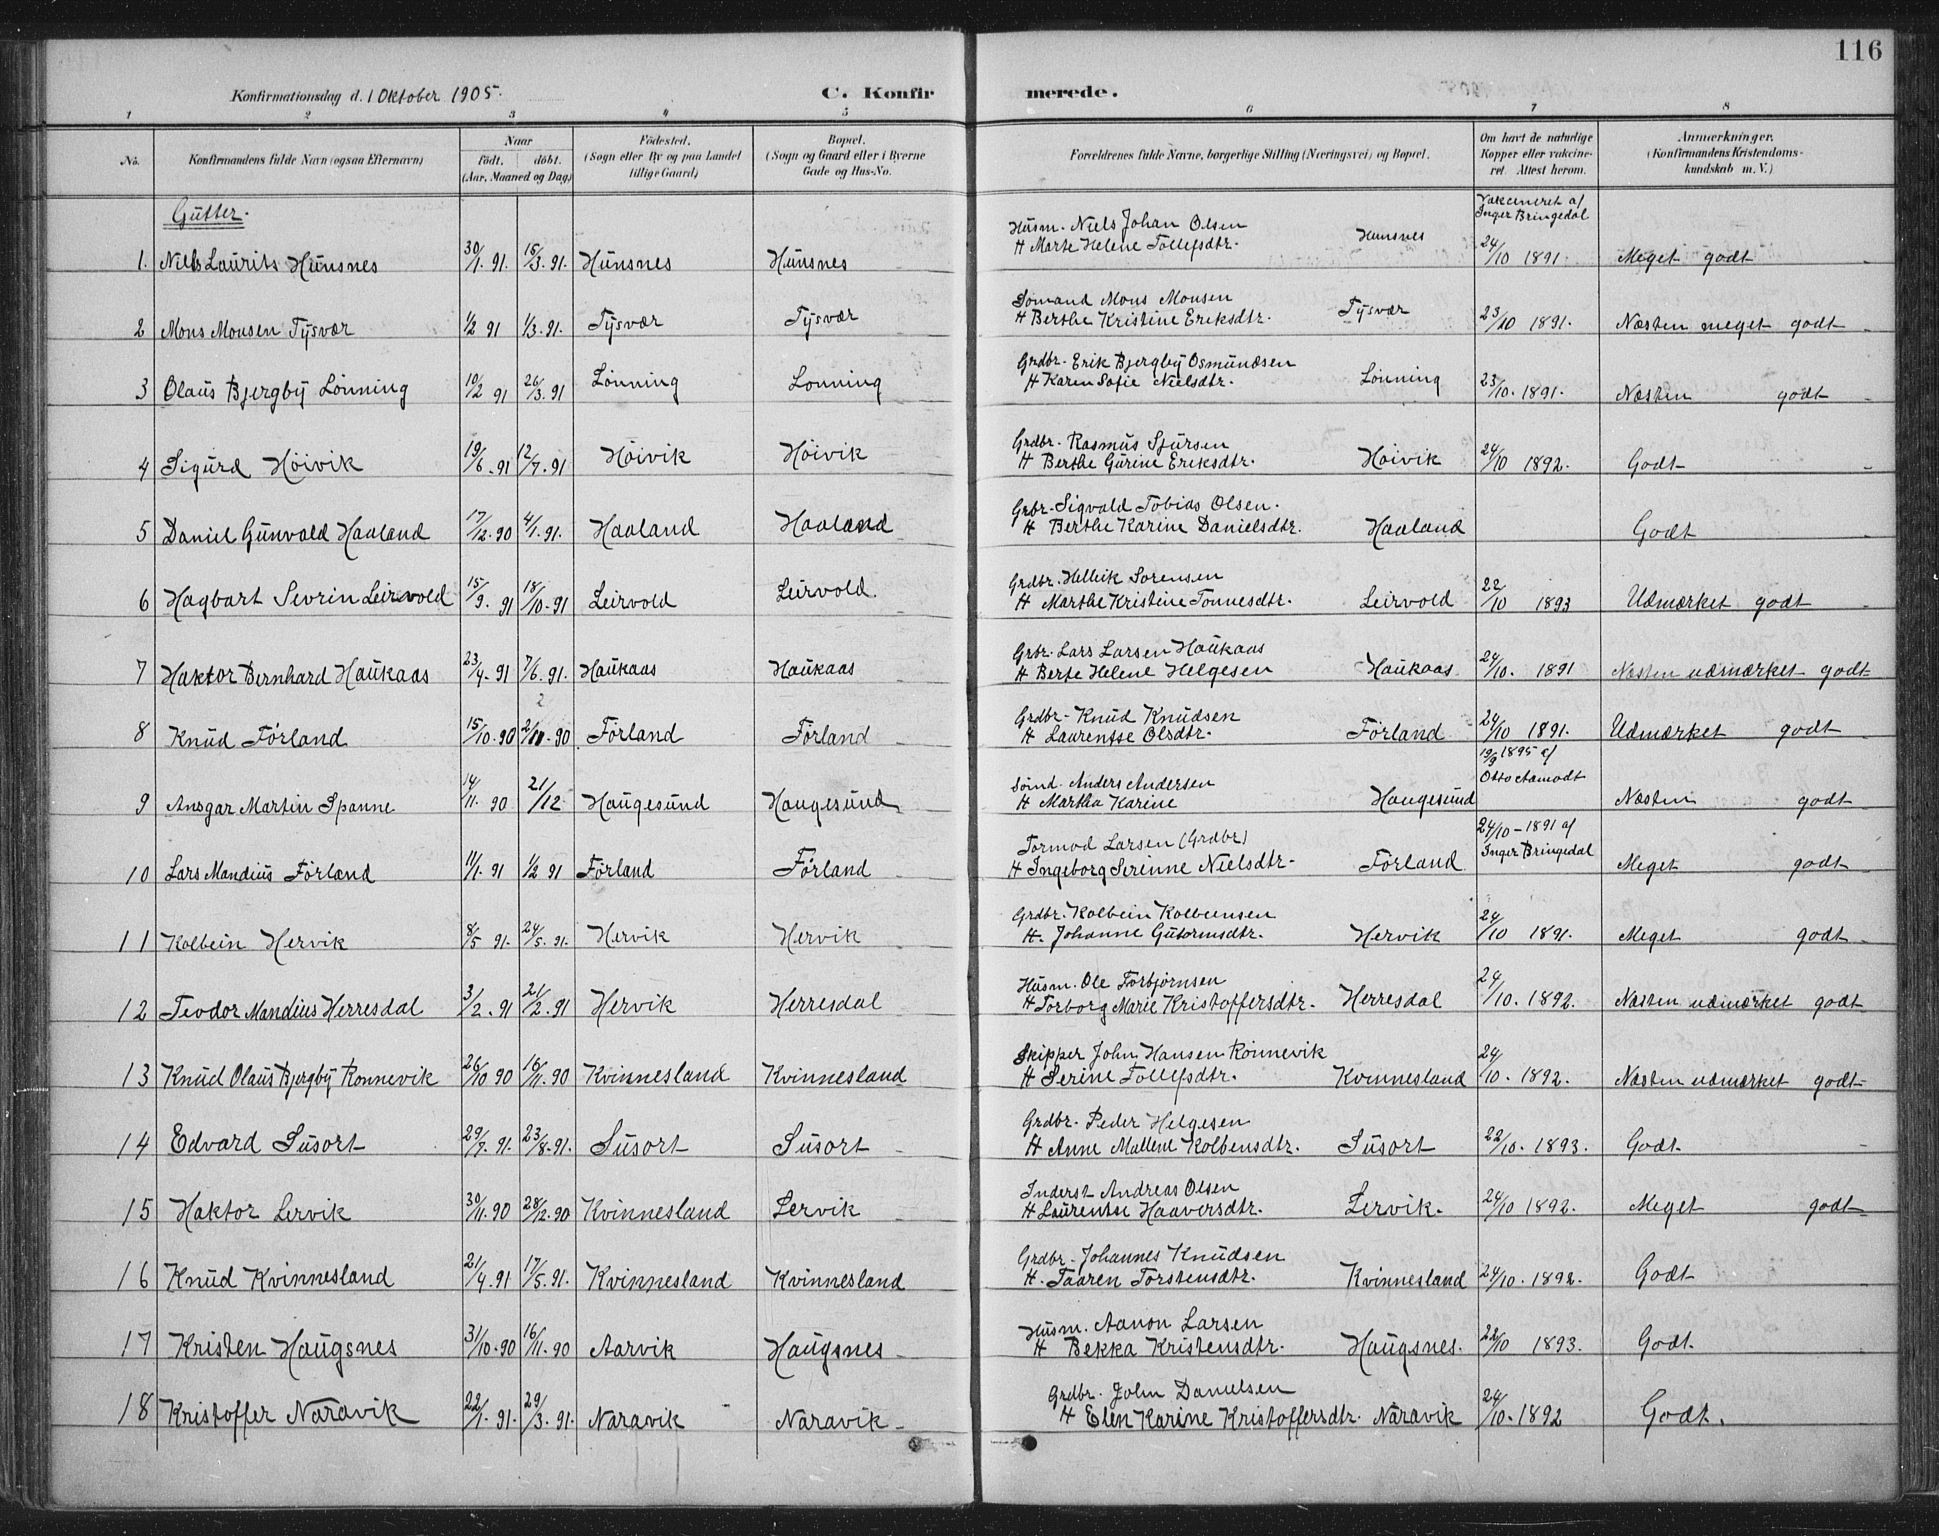 116
Konfirmationsdag d. 1 Oktober 1905. C. Konfirmerede.
1 2 3 4 5 6 7 8
No. Konfirmandens fulde Navn (ogsaa Efternavn) Naar født. døbt. (Aar, Maaned og Dag) Fødested. (Sogn eller By og paa Landet tillige Gaard) Bopæl. (Sogn og Gaard eller i Byerne Gade og Hus-No. Forældrenes fulde Navne, borgerlige Stilling (Næringsvei) og Bopæl. Om havt de naturlige Kopper eller vakcineret. Attest herom. Anmærkninger. (Konfirmandens Kristendomskundskab m. V.)
Gutter.
Vakcineret af Inger Bringedal
Husm. Niels Johan Olsen
1. Niels Laurits Hunsnes 30/1. 91. 15/3. 91. Hunsnes Hunsnes H Marte Helene Tollefsdtr. Hunsnes 24/10 1891. Meget godt
Sømand Mons Monsen
2 Mons Monsen Tysvær 1/2 91 1/3. 91. Tysvær Tysvær H Berthe Kristine Eriksdtr. Tysvær 23/10 1891. Næsten meget godt
Grdbr. Erik Bjergby Osmundsen
3 Olaus Bjergby Lønning 10/2 91 26/3. 91 Lønning Lønning H Karen Sofie Nielsdtr. Lønning 23/10. 1891. Næsten godt
Grdbr. Rasmus Sjursen
4 Sigurd Høivik 19/6. 91 12/7. 91 Høivik Høivik H Berthe Gurine Eriksdtr. Høivik 24/10 1892. Godt
Grbr. Sigvald Tobias Olsen.
5 Daniel Gunvald Haaland 17/12. 90 4/1. 91. Haaland Haaland H Berthe Karine Danielsdtr. Haaland Godt
Grdbr. Hellik Sørensen
6 Hagbart Sevrin Leirvold 15/9. 91 18/10. 91 Leirvold Leirvold. H Marthe Kristine Tønnesdtr. Leirvold 22/10 1893 Udmærket godt
Grbr. Lars Larsen Haukaas
7 Haktor Bernhard Haukaas 23/4. 91 7/6. 91. Haukaas Haukaas H Berte Helene Helgesen Haukaas 24/10. 1891 Næsten udmærket godt
Grdbr. Knud Knudsen
8 Knud Førland 15/10. 90 90 Førland Førland H Laurentse Olsdtr. Førland 24/10 1891. Udmærket godt
19/9 1895 af Otto Aamodt
Sømd. Anders Andersen
9 Ansgar Martin Spanne 14/11. 90 21/12 Haugesund Haugesund H Martha Karine Haugesund Næsten godt
Tormod Larsen (Grdbr) 24/10 - 1891 af Inger Bringedal
10 Lars Mandius Førland 11/1. 91 1/2 91 Førland Førland H Ingeborg Serinne Nielsdtr. Førland Meget godt
Grdbr. Kolbein Kolbeinsen
11 Kolbein Hervik 8/5 91. 24/5. 91. Hervik Hervik H. Johanne Gutormsdtr. Hervik 24/10 1891. Meget godt
Husm. Ole Torbjørnsen
12 Teodor Mandius Herresdal 3/2. 91 21/2. 91 Hervik Herresdal H Torborg Marie Kristoffersdtr. Herresdal 24/10. 1892. Næsten udmærket godt
Skipper John Hansen Rønnevik
13 Knud Olaus Bjergby Rønnevik 26/10 90 16/11. 90 Kvinnesland Kvinnesland H Serine Tollefsdtr. Kvinnesland 24/10. 1892. Næsten udmærket godt
Grdbr. Peder Helgesen
14 Edvard Susort 29/7. 91. 23/8. 91. Susort Susort H Anne Mallene Kolbensdtr. Susort 22/10. 1893. Godt.
Inderst Andreas Olsen
15 Haktor Lervik 30/11. 90 28/12. 90 Kvinnesland Lervik H Laurentse Haaversdtr. Lervik. 24/10 1892. Meget godt
Grdbr. Johannes Knudsen
16 Knud Kvinnesland 21/4. 91 17/5. 91. Kvinnesland Kvinnesland H. Taaren Torstensdtr. Kvinnesland 24/10. 1892. Godt
Husm. Aanon Larsen
17 Kristen Haugsnes 31/10. 90 16/11. 90 Aarvik Haugsnes H Bekka Kristensdtr. Haugsnes. 22/10 1893. Godt.
Grdbr. John Danielsen
18 Kristoffer Naravik 22/1. 91. 29/3. 91. Naravik Naravik H Elen Karine Kristoffersdtr. Naravik 24/10. 1892 Godt.